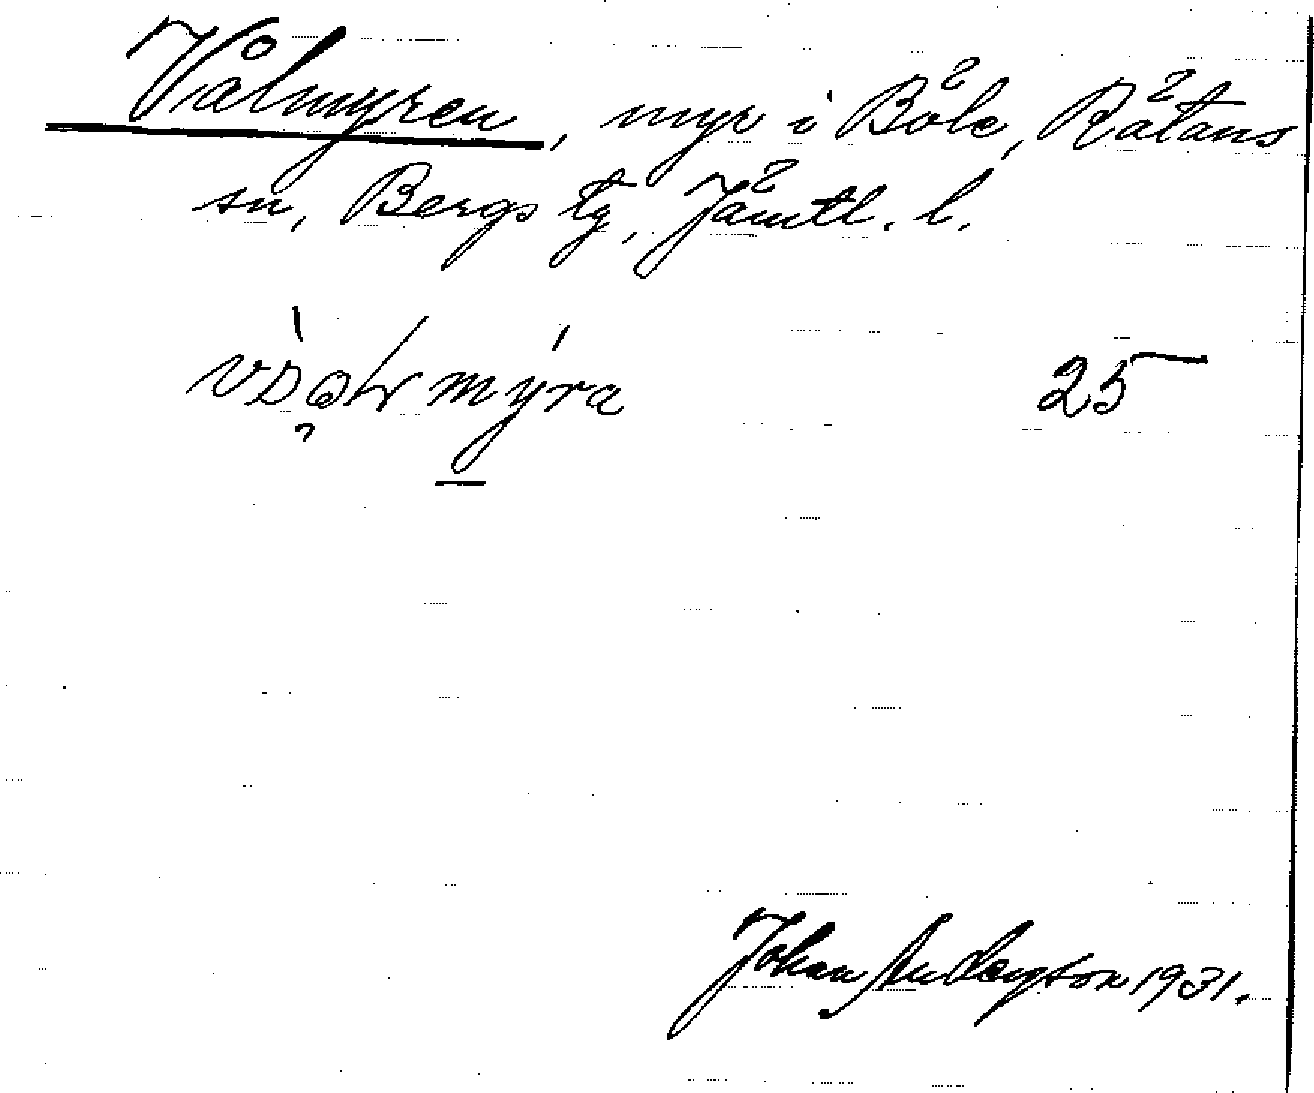 Vålmyren, myr i Böle, Rätans
sn, Bergs tg, Jämtl. l.
mýra 25
Johan Anderson 1931.